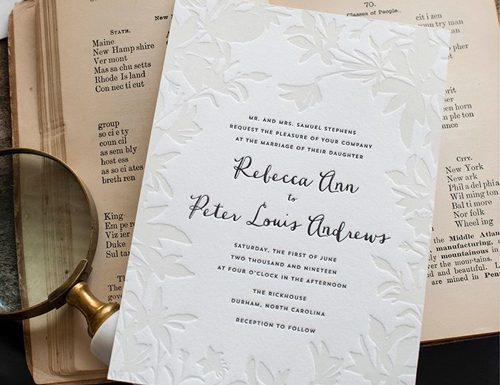 70.
Classes of People.
State.
Maine
New Hamp shire
Ver mont
Mas sa chu setts
Rhode Is land
Con nec ti cut
group
so ci e ty
coun cil
as sem bly
host ess
as so ci ates
breth ren
King
Em pe
Viz ier
Duke
MR. AND MRS. SAMUEL STEPHENS
REQUEST THE PLEASURE OF YOUR COMPANY
AT THE MARRIAGE OF THEIR DAUGHTER
Rebecca Ann
to
Peter Louis Andrews
SATURDAY, THE FIRST OF JUNE
TWO THOUSAND AND NINETEEN
AT FOUR O'CLOCK IN THE AFTERNOON
THE RICKHOUSE
DURHAM, NORTH CAROLINA
RECEPTION TO FOLLOW
City.
New York
Phil a del phi a
Wil ming ton
Bal ti more
Nor folk
Wheel ing
Middle Atlan
manufacturing,
mountainous in
and beautiful. L
are mined in Penn